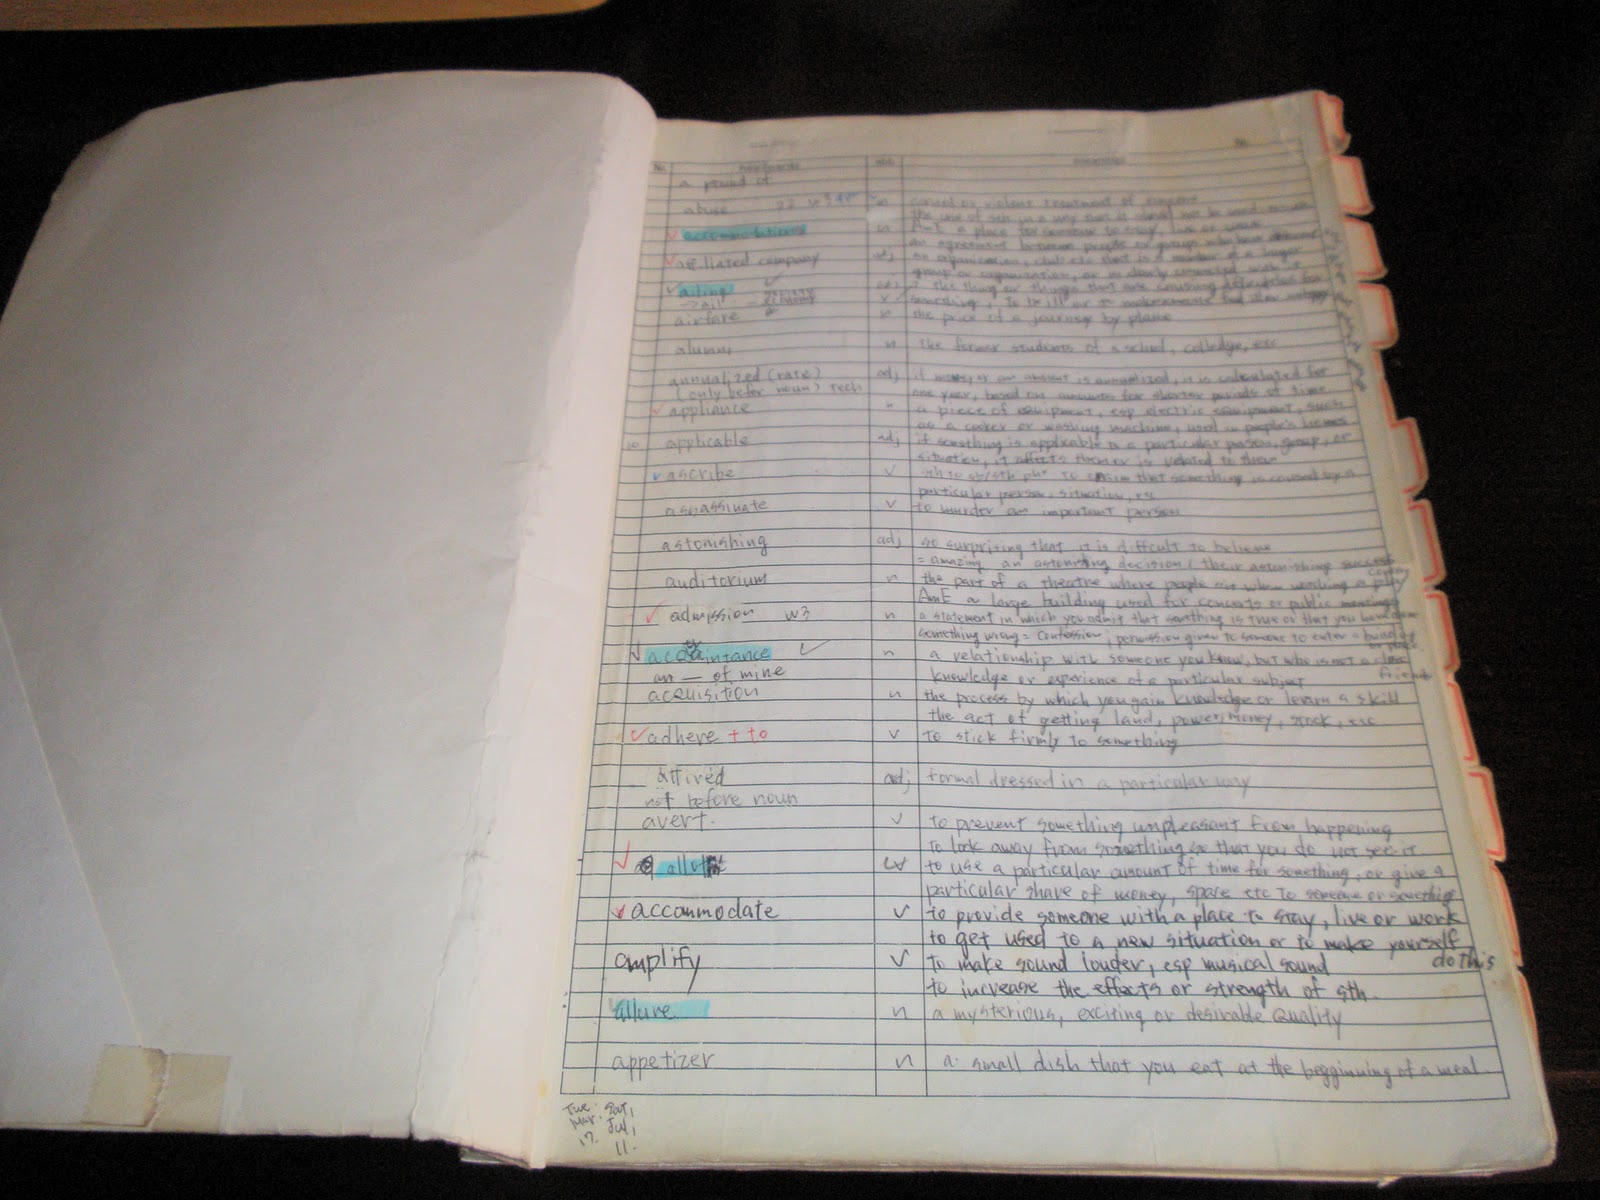 No.
a pound of
abuse n
accommodations n AmE a place for someone to stay, live or work
an agreement between people or groups who have
affiliated company adj an organization, club etc that is a member of a larger
group or organization, or is closely connected with it
ailing society adj the thing or things that are causing difficulties for
→ ail economy v something, to be ill or to
airfare n the price of a journey by plane
alumni n the former students of a school, colledge, etc
annualized (rate) adj if money or an amount is annualized, it is calculated for
(only befor noun) tech one year, based on amounts for shorter periods of time
appliance n a piece of equipment, esp electric equipment, such
as a cooker or washing machine, used in people's homes
10 applicable adj if something is applicable to a particular person, group, or
situation, it affects them or is related to them
ascribe v sth to sb/sth phr to claim that something is caused by a
particular person, situation, etc
assassinate v to murder an important person
astonishing adj so surprising that it is difficult to believe
= amazing an astonishing decision / their astonishing success
auditorium n the part of a theatre where people sit when watching a play
AmE a large building used for concerts or public meetings
admission w3 n a statement in which you admit that something is true or that you have done
something wrong = confession; permission given to someone to enter a building
or place
acquaintance n a relationship with someone you know, but who is not a close
friend
an — of mine knowledge or experience of a particular subject
acquisition n the process by which you gain knowledge or learn a skill
the act of getting land, power, money, stock, etc
adhere + to v to stick firmly to something
attired adj formal dressed in a particular way
not before noun
avert. v to prevent something unpleasant from happening
to look away from something so that you do not see it
allot v to use a particular amount of time for something, or give a
particular share of money, space etc to someone or something
accommodate v to provide someone with a place to stay, live or work
to get used to a new situation or to make yourself
do this
amplify v to make sound louder, esp musical sound
to increase the effects or strength of sth.
allure n a mysterious, exciting or desirable quality
appetizer n a small dish that you eat at the begginning of a meal
Tue. Sat,
Mar. Jul,
17. 11.